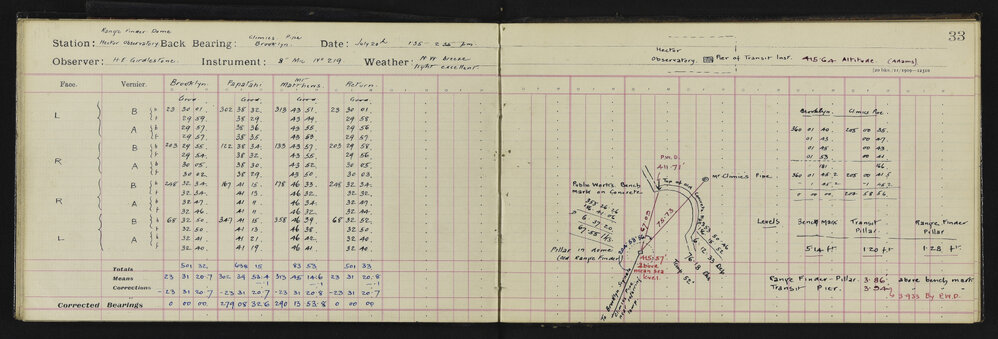 33
Range Finder Dome Climies Pine
Station: Hector Observatory Back Bearing: Brooklyn. Date: July 20th 1.35 - 2.35 pm.
Observer: H.E. Girdlestone. Instrument: 8" Mic No 219. Weather: N.W. Breeze
light excellent.
Hector
Observatory. Pier of Transit Inst. 415.64 Altitude (Adams)
Face. Vernier. Brooklyn. Papatahi. Mt Matthews. Return.
Good. Good. Good. Good.
L B 23 30 01. 302 38 32. 313 43 51. 23 30 01.
29 59. 38 29. 43 49. 29 58.
A 29 57. 38 36. 43 55. 29 56.
29 57. 38 35. 43 53. 29 57.
R B 203 29 55. 122 38 34. 133 43 57. 203 29 58.
29 54. 38 32. 43 55. 29 56.
A 30 05. 38 30. 43 52. 30 05.
30 02. 38 29. 43 50. 30 03.
R B 248 32 34. 167 41 15. 178 46 33. 248 32 34.
32 34. 41 13. 46 32. 32 32.
A 32 47. 41 11. 46 34. 32 47.
32 46. 41 11. 46 32. 32 44.
L B 68 32 50. 347 41 15. 358 46 39. 68 32 52.
32 50. 41 13. 46 38. 32 50.
A 32 41. 41 21. 46 42. 32 40.
32 40. 41 19. 46 41. 32 40.
Totals 501 32 638 15 83 53 501 33
Means 23 31 20.7 302 39 53.4 313 45 14.6 23 31 20.8
Corrections - .1 - .1
- 23 31 20.7 - 23 31 20.7 - 23 31 20.8 - 23 31 20.7
Corrected Bearings 0 00 00 279 08 32.6 290 13 53.8 0 00 00
Brooklyn. Climies Pine.
360 01 40 205 00 35.
01 43 00 47.
01 45 00 43.
01 53 00 41.
181 166
360 01 45.2 205 00 41.5
- 1 45.2 - 1 45.2
0 00 00 204 58 56.
P.W.D.
411.71
Mr Climies Pine
Public Works Bench
mark on Concrete
6. 57. 20.
67.55 lks.
67.00
75.73
6. 12. 33
76.18 lks
Temp 52°
Pillar in dome
(old Range Finder)
415.57
above
mean sea
level
To Brooklyn Signal
Levels Bench Mark Transit Pillar. Range Finder Pillar
5.14 ft. 1.20 ft. 1.28 ft.
Range Finder-Pillar 3.86' above bench mark
Transit Pier. 3.94
3.933 by P.W.D.